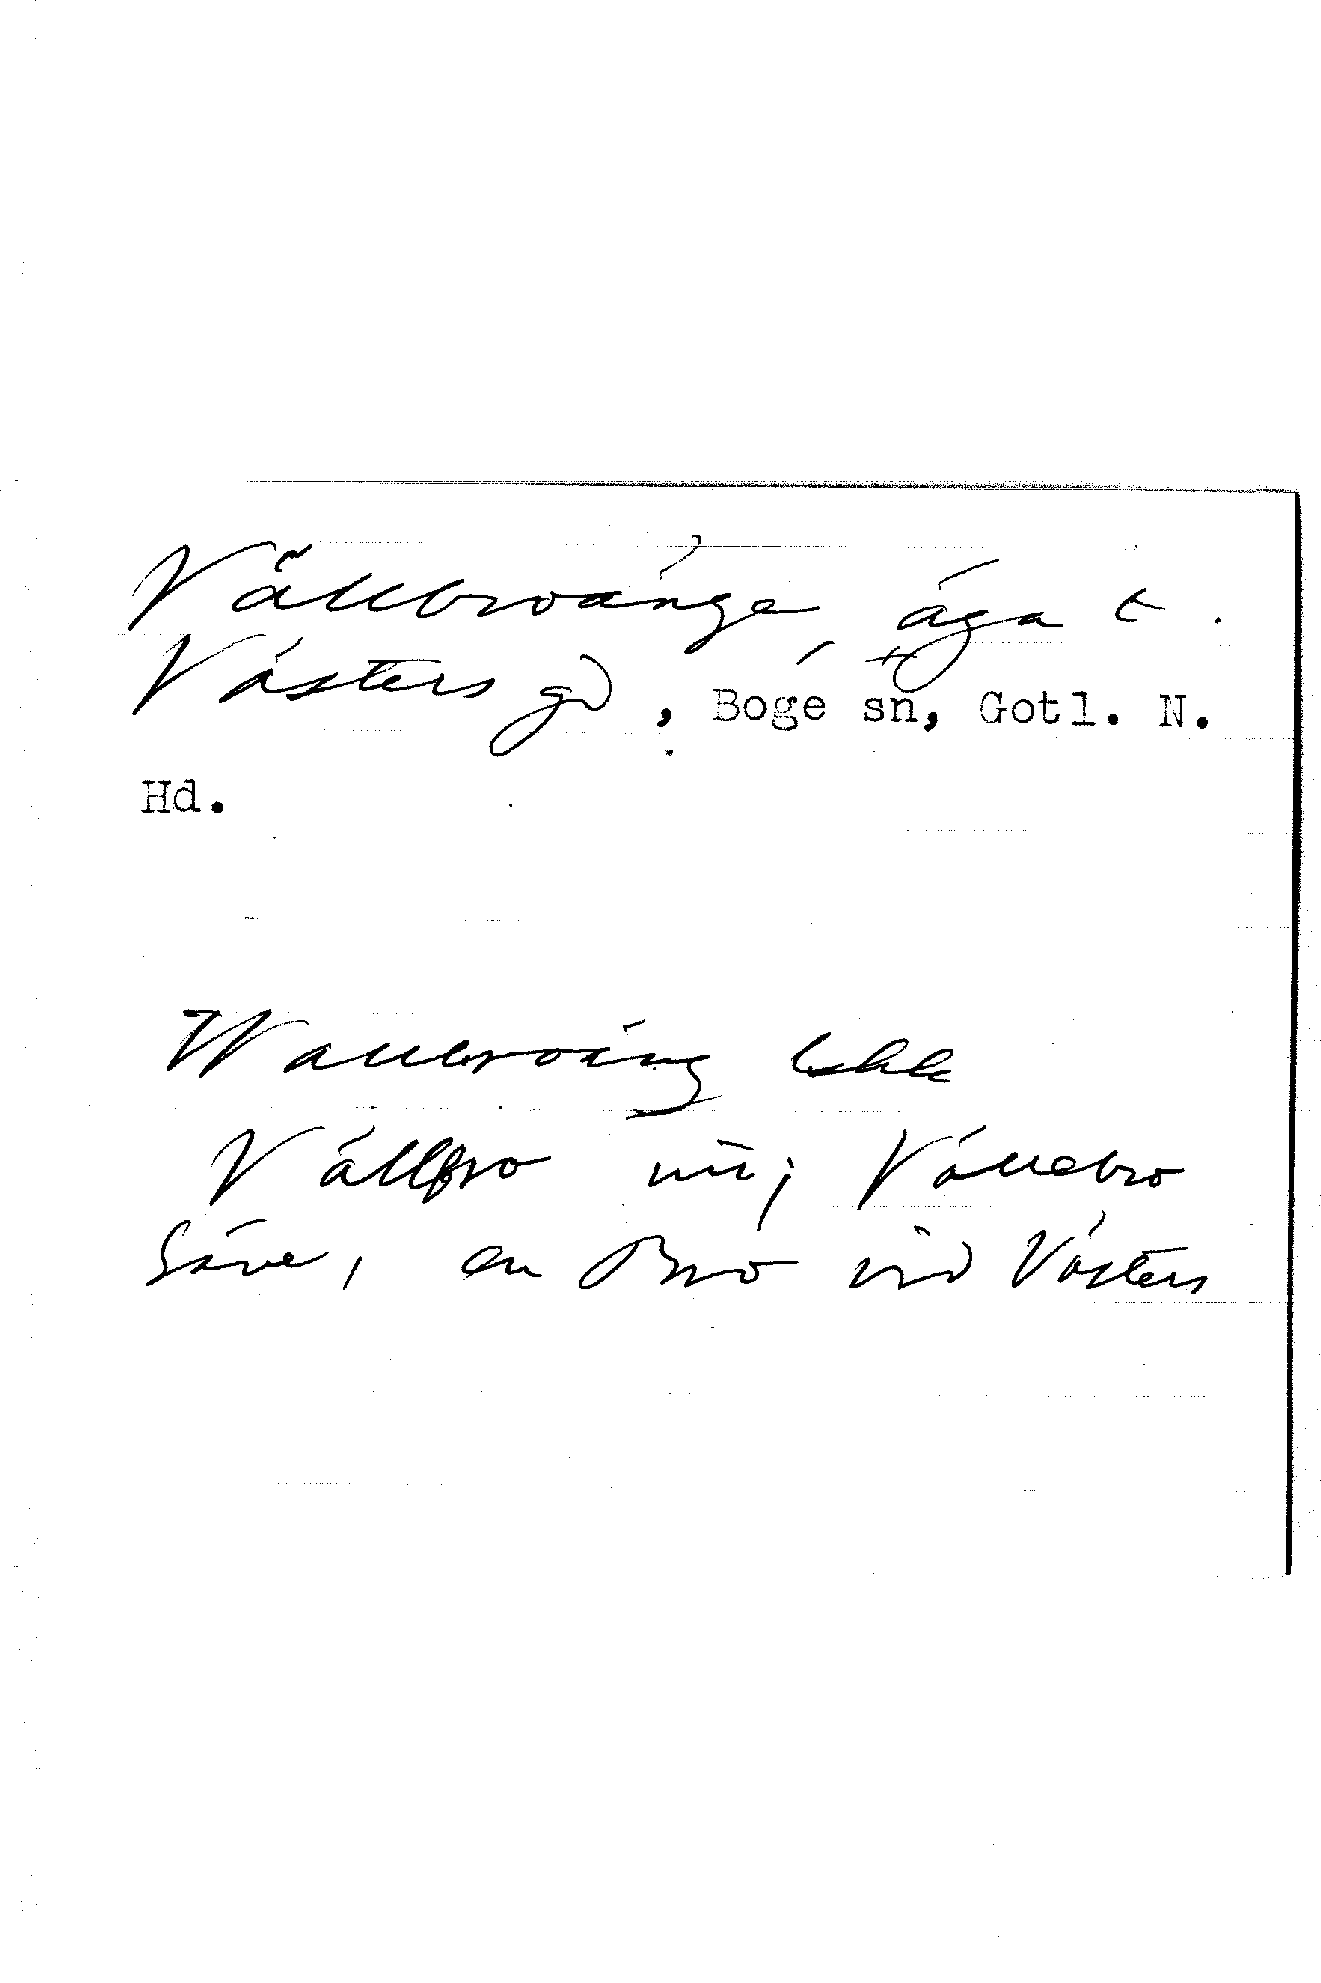 Vällbroänge, äga t.
Västers gd, Boge sn, Gotl. N.
Hd.
Wallbroäng
Vällbro
Vällebro
Säve, en Bro vid Västers